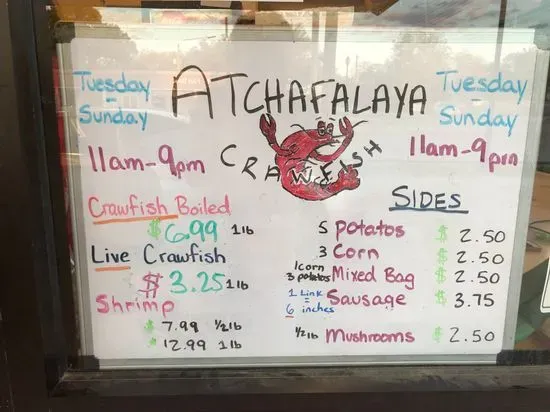 ATCHAFALAYA
CRAWFISH
Tuesday
-
Sunday
11am-9pm
Tuesday
-
Sunday
11am-9pm
Crawfish Boiled
$6.99 1lb
Live Crawfish
$3.25 1lb
Shrimp
$ 7.99 1/2lb
$ 12.99 1lb
SIDES
5 Potatos $ 2.50
3 Corn $ 2.50
1corn
3 potatos Mixed Bag $ 2.50
1 Link = 6 inches Sausage $ 3.75
1/2lb Mushrooms $ 2.50